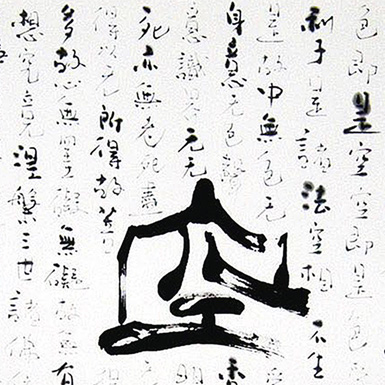 色即是空空即是色
利子是諸法空相不生
是故中無色无
身意无色聲香
意識界无无明
死亦無老死盡
得以无所得故菩
多故心無罣礙無礙故無有
想究竟涅槃三世諸佛
空